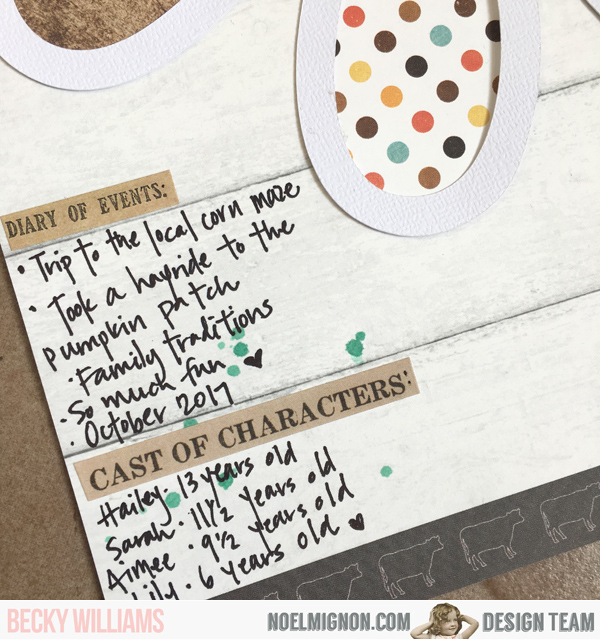 DIARY OF EVENTS:
• Trip to the local corn maze
• Took a hayride to the
pumpkin patch
• Family traditions
• So much fun ♥
• October 2017
CAST OF CHARACTERS:
Hailey • 13 years old
Sarah • 11 1/2 years old
Aimee • 9 1/2 years old
Lily • 6 years old ♥
BECKY WILLIAMS NOELMIGNON.COM DESIGN TEAM